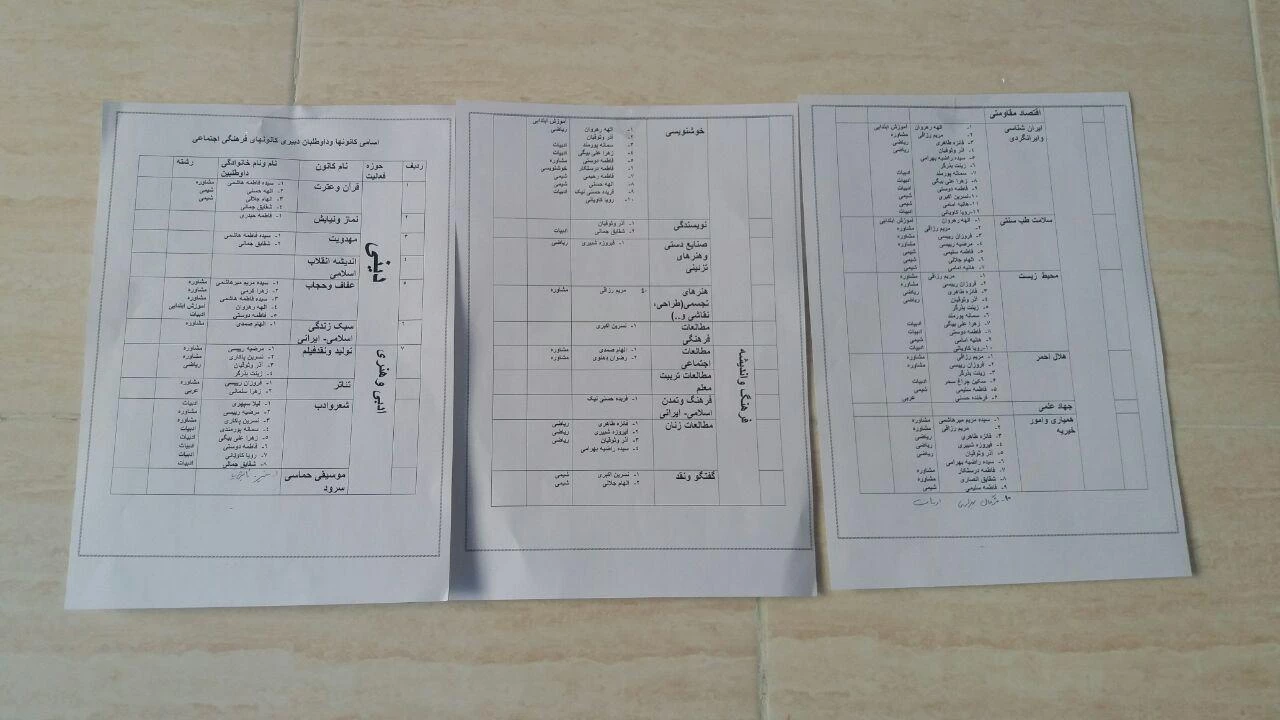 اسامی کانونها وداوطلبان دبیری کانونهای فرهنگی اجتماعی
ردیف حوزه فعالیت نام کانون نام ونام خانوادگی داوطلبین رشته
دینی
۱ قرآن وعترت
۱- سیده فاطمه هاشمی مشاوره
۲- الهه حسنی شیمی
۳- الهام جلالی شیمی
۴- شقایق جمانی
۲ نماز ونیایش
۱- فاطمه حیدری
۳ مهدویت
۱- سیده فاطمه هاشمی
۲- شقایق جمانی
۴ اندیشه انقلاب اسلامی
۵ عفاف وحجاب
۱- سیده مریم میرهاشمی مشاوره
۲- زهرا کرمی مشاوره
۳- سیده فاطمه هاشمی مشاوره
۴- الهه رهروان آموزش ابتدایی
۵- فاطمه دوستی ادبیات
۶ سبک زندگی اسلامی- ایرانی
۱- الهام صمدی مشاوره
ادبی وهنری
۷ تولید ونقدفیلم
۱- مرضیه رییسی مشاوره
۲- نسرین پاکاری مشاوره
۳- آذر وثوقیان ریاضی
۴- زینت بذرگر
تئاتر
۱- فروزان رییسی مشاوره
۲- زهرا سلمانی عربی
شعروادب
۱- لیلا سپهری ادبیات
۲- مرضیه رییسی مشاوره
۳- نسرین پاکاری مشاوره
۴- سمانه پورمندی ادبیات
۵- زهرا علی بیگی ادبیات
۶- فاطمه دوستی ادبیات
۷- رویا کاویانی ادبیات
۸- شقایق جمالی ادبیات
موسیقی حماسی سرود
خوشنویسی
آموزش ابتدایی
۱- الهه رهروان ریاضی
۲- آذر وثوقیان
۳- سمانه پورمند ادبیات
۴- زهرا علی بیگی ادبیات
۵- فاطمه دوستی مشاوره
۶- فاطمه درستکار خوشنویسی
۷- فاطمه رحیمی شیمی
۸- الهه حسنی شیمی
۹- فریده حسنی نیک ادبیات
۱۰- رویا کاویانی
نویسندگی
۱- آذر وثوقیان
۲- شقایق جمالی ادبیات
صنایع دستی وهنرهای تزئینی
۱- فیروزه شبیری ریاضی
هنرهای تجسمی(طراحی، نقاشی و..)
مریم رزاقی مشاوره
فرهنگ واندیشه
مطالعات فرهنگی
۱- نسرین اکبری
مطالعات اجتماعی
۱- الهام صمدی مشاوره
۲- رضوان دهنوی مشاوره
مطالعات تربیت معلم
فرهنگ وتمدن اسلامی- ایرانی
۱- فریده حسنی نیک
مطالعات زنان
۱- فائزه طاهری ریاضی
۲- فیروزه شبیری ریاضی
۳- آذر وثوقیان ریاضی
۴- سیده راضیه بهرامی
گفتگو ونقد
۱- نسرین اکبری شیمی
۲- الهام جلالی شیمی
اقتصاد مقاومتی
ایران شناسی وایرانگردی
۱- الهه رهروان آموزش ابتدایی
۲- مریم رزاقی مشاوره
۳- فائزه طاهری ریاضی
۴- آذر وثوقیان ریاضی
۵- سیده راضیه بهرامی
۶- زینت بذرگر
۷- سمانه پورمند ادبیات
۸- زهرا علی بیگی ادبیات
۹- فاطمه دوستی ادبیات
۱۰- نسرین اکبری شیمی
۱۱- هانیه امامی شیمی
۱۲- رویا کاویانی ادبیات
سلامت طب سنتی
۱- الهه رهروان آموزش ابتدایی
۲- مریم رزاقی مشاوره
۳- فروزان رییسی مشاوره
۴- مرضیه رییسی مشاوره
۵- فاطمه سلیمی شیمی
۶- الهام جلالی شیمی
۷- هانیه امامی شیمی
محیط زیست
۱- مریم رزاقی مشاوره
۲- فروزان رییسی مشاوره
۳- فائزه طاهری ریاضی
۴- آذر وثوقیان ریاضی
۵- زینت بذرگر
۶- سمانه پورمند
۷- زهرا علی بیگی ادبیات
۸- فاطمه دوستی ادبیات
۹- هانیه امامی شیمی
۱۰- رویا کاویانی ادبیات
هلال احمر
۱- مریم رزاقی مشاوره
۲- فروزان رییسی مشاوره
۳- زینت بذرگر
۴- ساتین چراغ سحر ادبیات
۵- فاطمه سلیمی شیمی
۶- فرخنده حسنی عربی
جهاد علمی
همیاری وامور خیریه
۱- سیده مریم میرهاشمی مشاوره
۲- مریم رزاقی مشاوره
۳- فائزه طاهری ریاضی
۴- فیروزه شبیری ریاضی
۵- آذر وثوقیان ریاضی
۶- سیده راضیه بهرامی
۷- فاطمه درستکار مشاوره
۸- شقایق انصاری مشاوره
۹- فاطمه سلیمی شیمی
۱۰- ادبیات